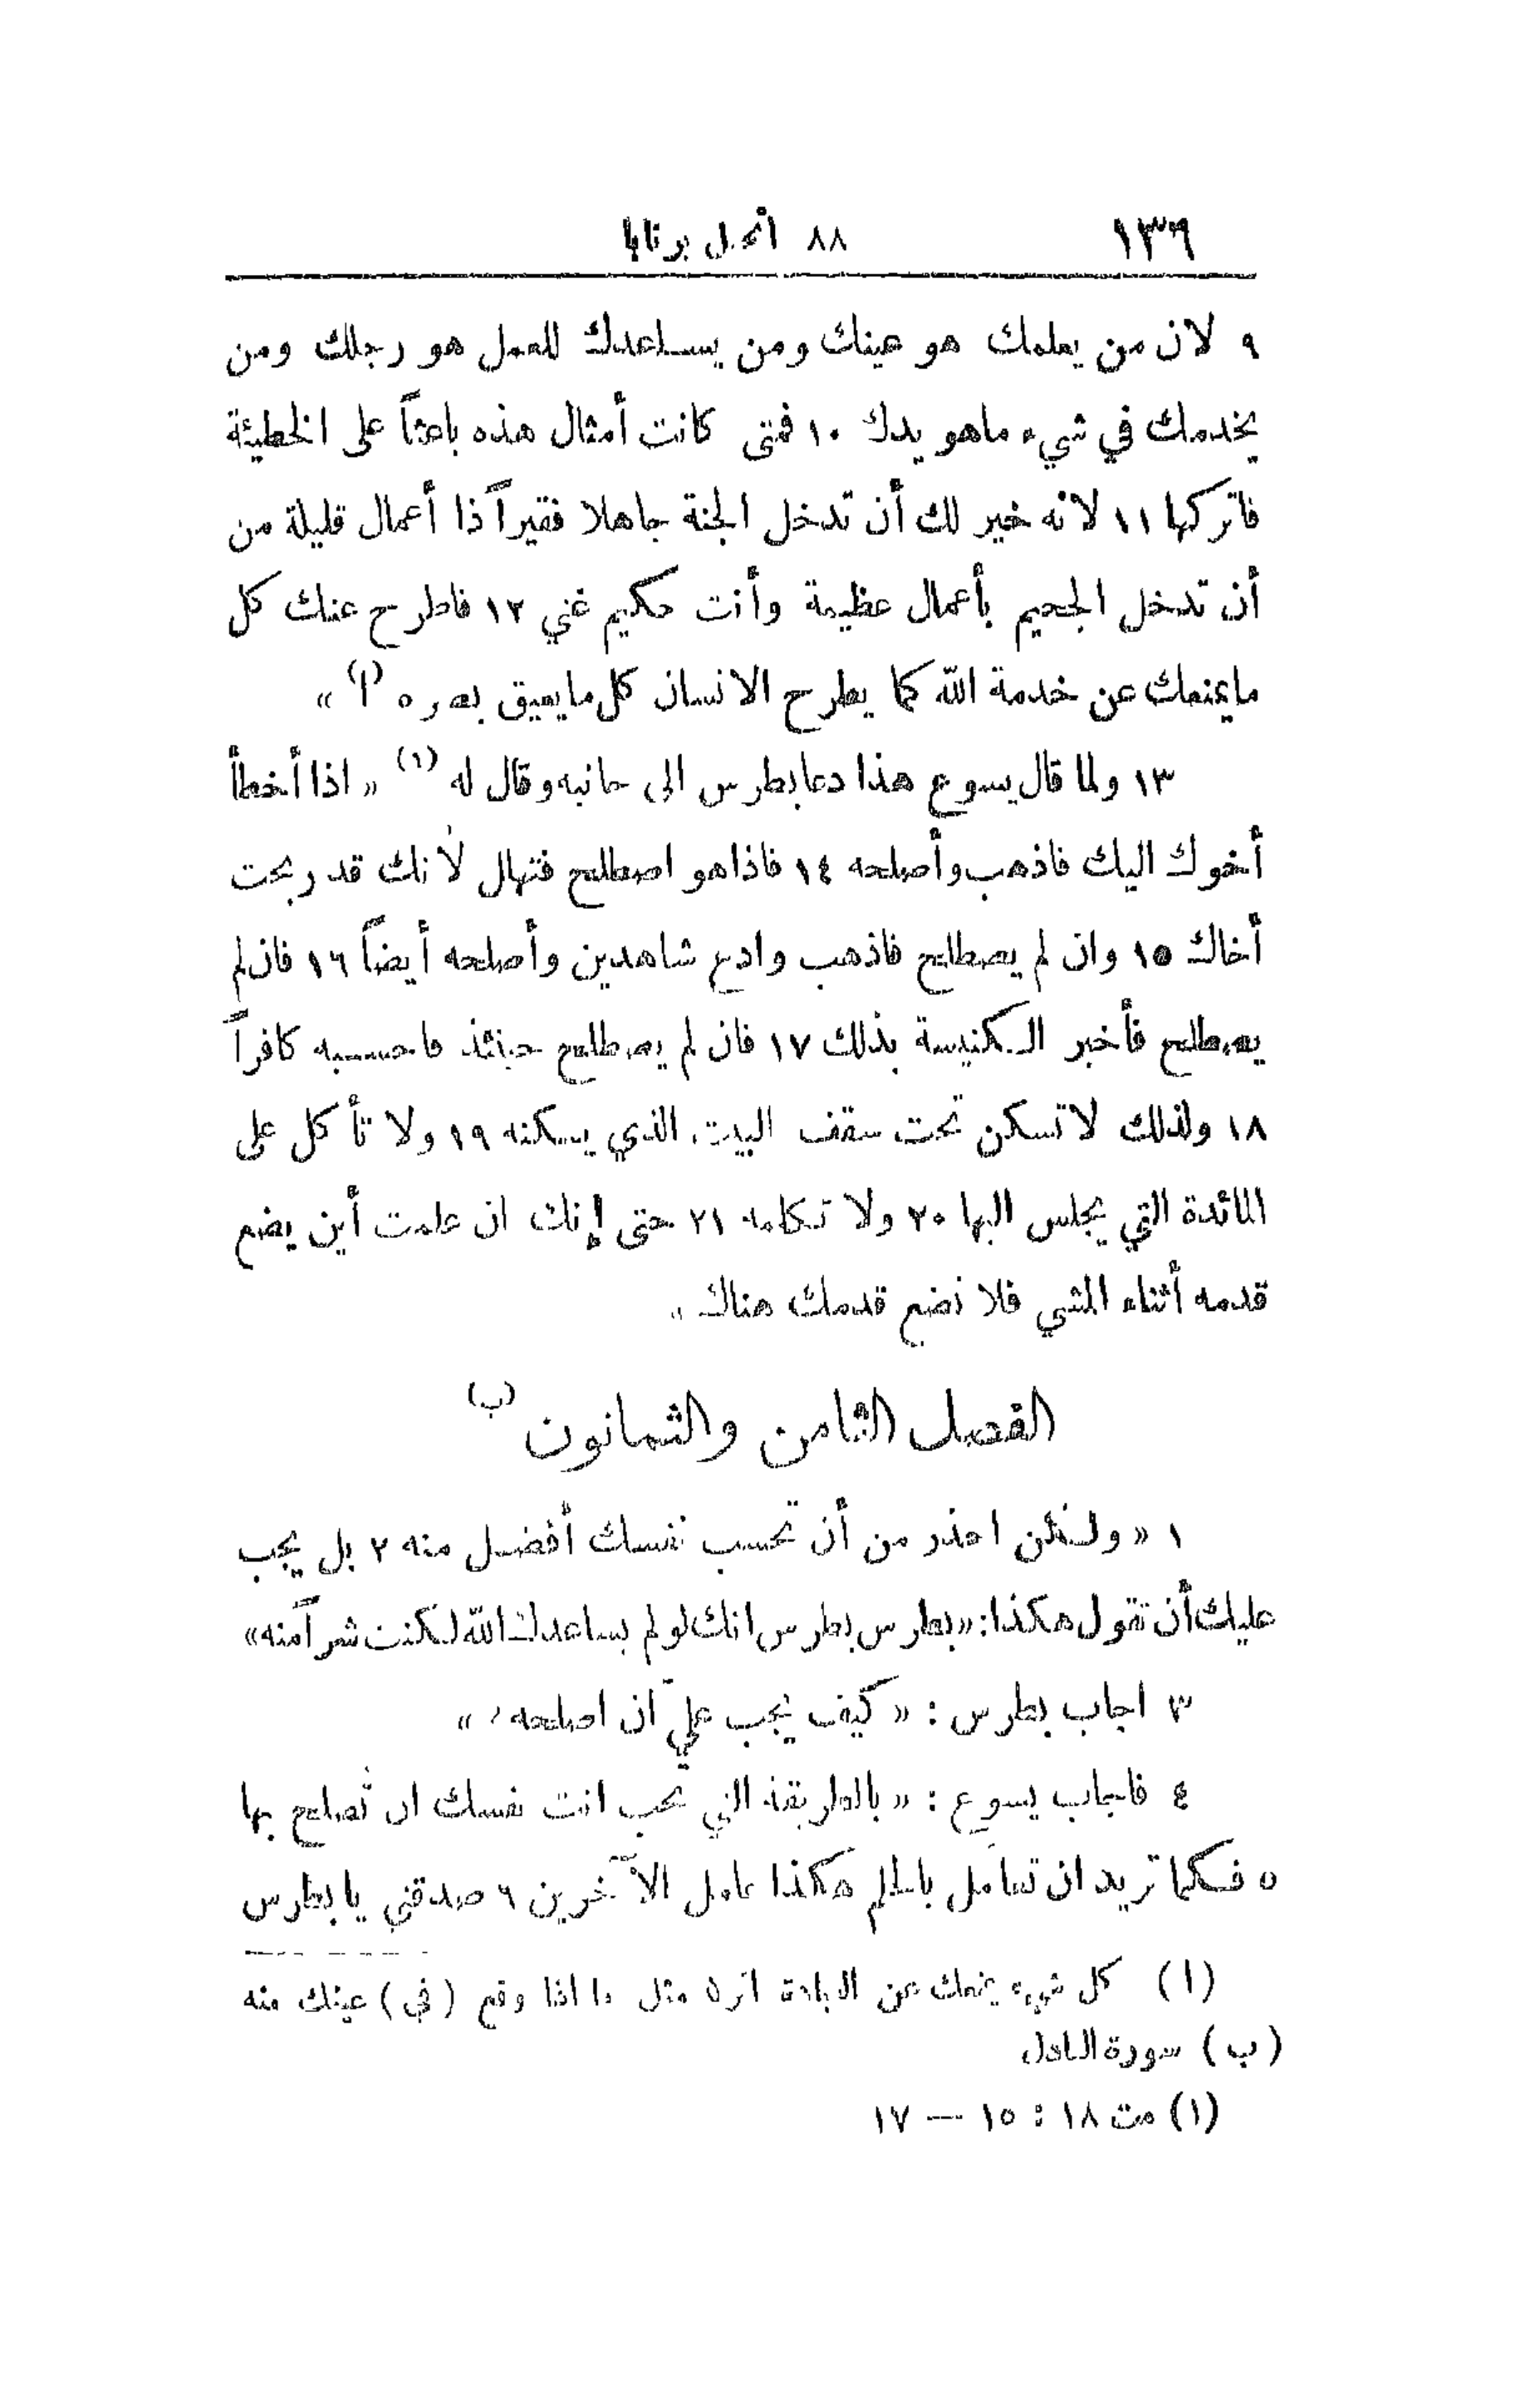 ١٣٦ ٨٨ أنجيل برنابا
٩ لان من يعلمك هو عينك ومن يساعدك للعمل هو رجلك ومن
يخدمك في شيء ماهو يدك ١٠ فمتى كانت أمثال هذه باعثاً على الخطيئة
فاتركها ١١ لانه خير لك أن تدخل الجنة جاهلا فقيراً ذا أعمال قليلة من
أن تدخل الجحيم بأعمال عظيمة وأنت حكيم غني ١٢ فاطرح عنك كل
مايمنعك عن خدمة الله كما يطرح الانسان كل مايعيق بصره (أ) »
١٣ ولما قال يسوع هذا دعا بطرس الى جانبه وقال له (١) « اذا أخطأ
أخوك اليك فاذهب وأصلحه ١٤ فاذا هو اصطلح فتهال لأنك قد ربحت
أخاك ١٥ وان لم يصطلح فاذهب وادع شاهدين وأصلحه أيضاً ١٦ فان لم
يصطلح فأخبر الكنيسة بذلك ١٧ فان لم يصطلح حينئذ فاحسبه كافراً
١٨ ولذلك لا تسكن تحت سقف البيت الذي يسكنه ١٩ ولا تأكل على
المائدة التي يجلس اليها ٢٠ ولا تكلمه ٢١ حتى إنك ان علمت أين يضع
قدمه أثناء المشي فلا تضع قدمك هناك »
الفصل الثامن والثمانون (ب)
١ « ولكن احذر من أن تحسب نفسك أفضل منه ٢ بل يجب
عليك أن تقول هكذا: «بطرس بطرس انك لو لم يساعدك الله لكنت شراً منه»
٣ اجاب بطرس : « كيف يجب عليّ ان اصلحه »
٤ فاجاب يسوع : « بالطريقة التي تحب انت نفسك ان تُصلح بها
٥ فكما تريد ان تعامَل بالحلم هكذا عامل الآخرين ٦ صدقني يا بطرس
(ا) كل شيء يمنعك عن العبادة اتر مثل ما اذا وقع (في) عينك منه
(ب) سورة العادل
(١) مت ١٨ : ١٥ — ١٧